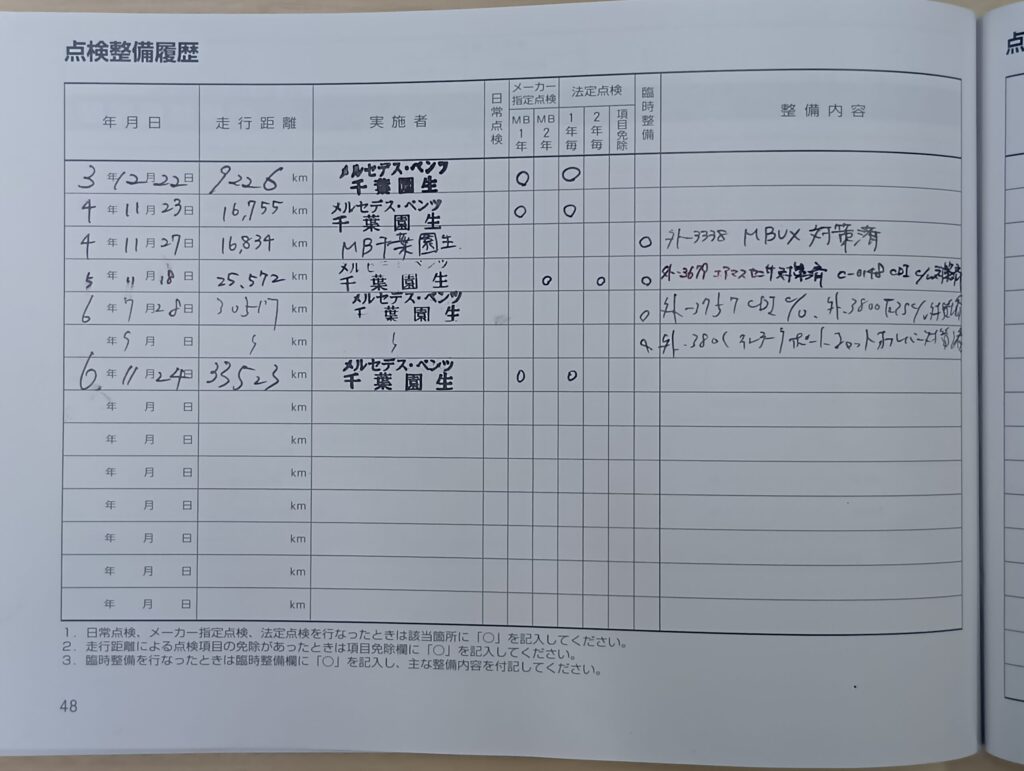 点検整備履歴
年月日 走行距離 実施者 日常点検 メーカー指定点検 MB1年 MB2年 法定点検 1年毎 2年毎 項目免除 臨時整備 整備内容
3年12月22日 9226 km メルセデス・ベンツ千葉園生 ○ ○
4年11月23日 16,755 km メルセデス・ベンツ千葉園生 ○ ○
4年11月27日 16,834 km MB千葉園生. ○ 外-3338 MBUX 対策済
5年11月18日 25,572 km メルセデス・ベンツ千葉園生 ○ ○ ○ 外-3679 エアマスセンサ対策済 C-0148 CDI
6年7月28日 30517 km メルセデス・ベンツ千葉園生 ○ 外-3757 CDI %. 外-3800
年 月 日 km 外-380
6年11月24日 33523 km メルセデス・ベンツ千葉園生 ○ ○
年 月 日 km
年 月 日 km
年 月 日 km
年 月 日 km
年 月 日 km
年 月 日 km
年 月 日 km
1. 日常点検、メーカー指定点検、法定点検を行なったときは該当箇所に「○」を記入してください。
2. 走行距離による点検項目の免除があったときは項目免除欄に「○」を記入してください。
3. 臨時整備を行なったときは臨時整備欄に「○」を記入し、主な整備内容を付記してください。
48
点